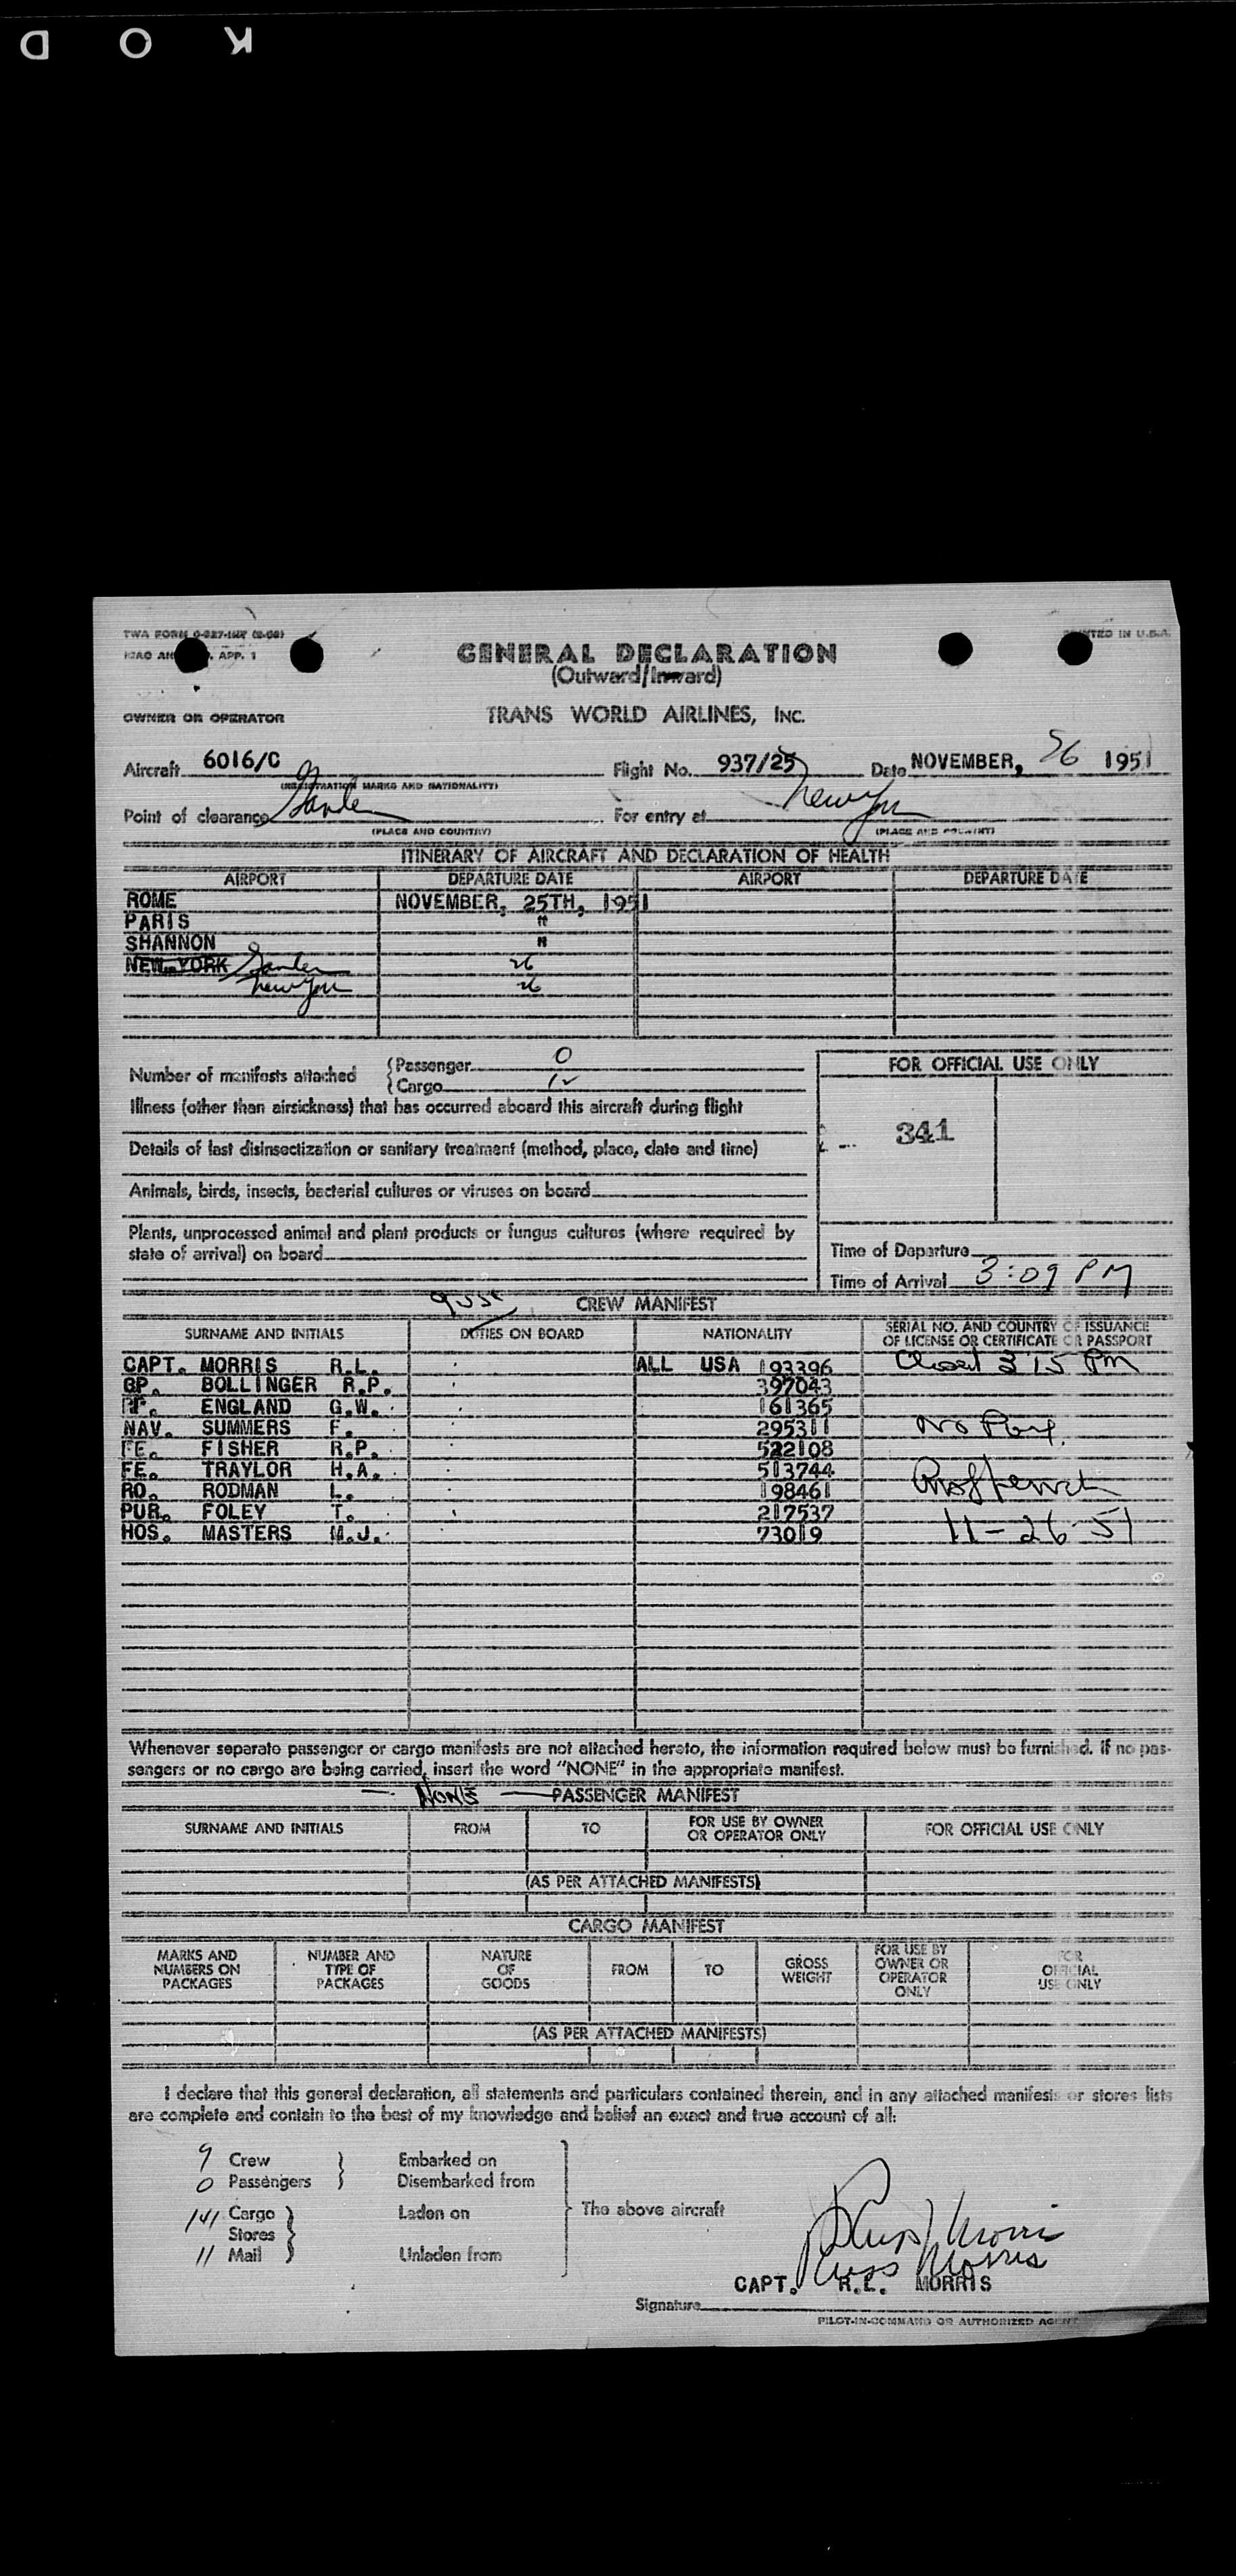 K O D
TWA FORM O-827-INT
PRINTED IN U.S.A.
ICAO AN , APP. 1
GENERAL DECLARATION
(Outward/Inward)
OWNER OR OPERATOR TRANS WORLD AIRLINES, INC.
Aircraft 6016/C Flight No. 937/25 Date NOVEMBER, 26 1951
(REGISTRATION MARKS AND NATIONALITY)
Point of clearance Gander For entry at New York
(PLACE AND COUNTRY) (PLACE AND COUNTRY)
ITINERARY OF AIRCRAFT AND DECLARATION OF HEALTH
AIRPORT DEPARTURE DATE AIRPORT DEPARTURE DATE
ROME NOVEMBER, 25TH, 1951
PARIS "
SHANNON "
NEW YORK Gander 26
New York 26
Number of manifests attached
Passenger 0
Cargo
Illness (other than airsickness) that has occurred aboard this aircraft during flight
Details of last disinsectization or sanitary treatment (method, place, date and time)
Animals, birds, insects, bacterial cultures or viruses on board
Plants, unprocessed animal and plant products or fungus cultures (where required by
state of arrival) on board
FOR OFFICIAL USE ONLY
341
Time of Departure
Time of Arrival 3:09 PM
CREW MANIFEST
SURNAME AND INITIALS DUTIES ON BOARD NATIONALITY SERIAL NO. AND COUNTRY OF ISSUANCE
OF LICENSE OR CERTIFICATE OR PASSPORT
CAPT. MORRIS R.L. ALL USA 193396 Closed 3 15 PM
BOLLINGER R.P. 397043
ENGLAND G.W. 161365
NAV. SUMMERS F. 295311 No
FE. FISHER R.P. 522108
FE. TRAYLOR H.A. 513744
RO. RODMAN L. 198461
PUR. FOLEY T. 217537
HOS. MASTERS M.J. 73019 11-26-51
Whenever separate passenger or cargo manifests are not attached hereto, the information required below must be furnished. If no pas-
sengers or no cargo are being carried, insert the word "NONE" in the appropriate manifest.
— NONE — PASSENGER MANIFEST
SURNAME AND INITIALS FROM TO FOR USE BY OWNER
OR OPERATOR ONLY FOR OFFICIAL USE ONLY
(AS PER ATTACHED MANIFESTS)
CARGO MANIFEST
MARKS AND
NUMBERS ON
PACKAGES
NUMBER AND
TYPE OF
PACKAGES
NATURE
OF
GOODS
FROM
TO
GROSS
WEIGHT
FOR USE BY
OWNER OR
OPERATOR
ONLY
FOR
OFFICIAL
USE ONLY
(AS PER ATTACHED MANIFESTS)
I declare that this general declaration, all statements and particulars contained therein, and in any attached manifests or stores lists
are complete and contain to the best of my knowledge and belief an exact and true account of all:
9 Crew Embarked on
0 Passengers Disembarked from
141 Cargo Laden on
Stores
11 Mail Unladen from
The above aircraft
Russ Morris
CAPT. R.L. MORRIS
Signature
PILOT-IN-COMMAND OR AUTHORIZED AGENT